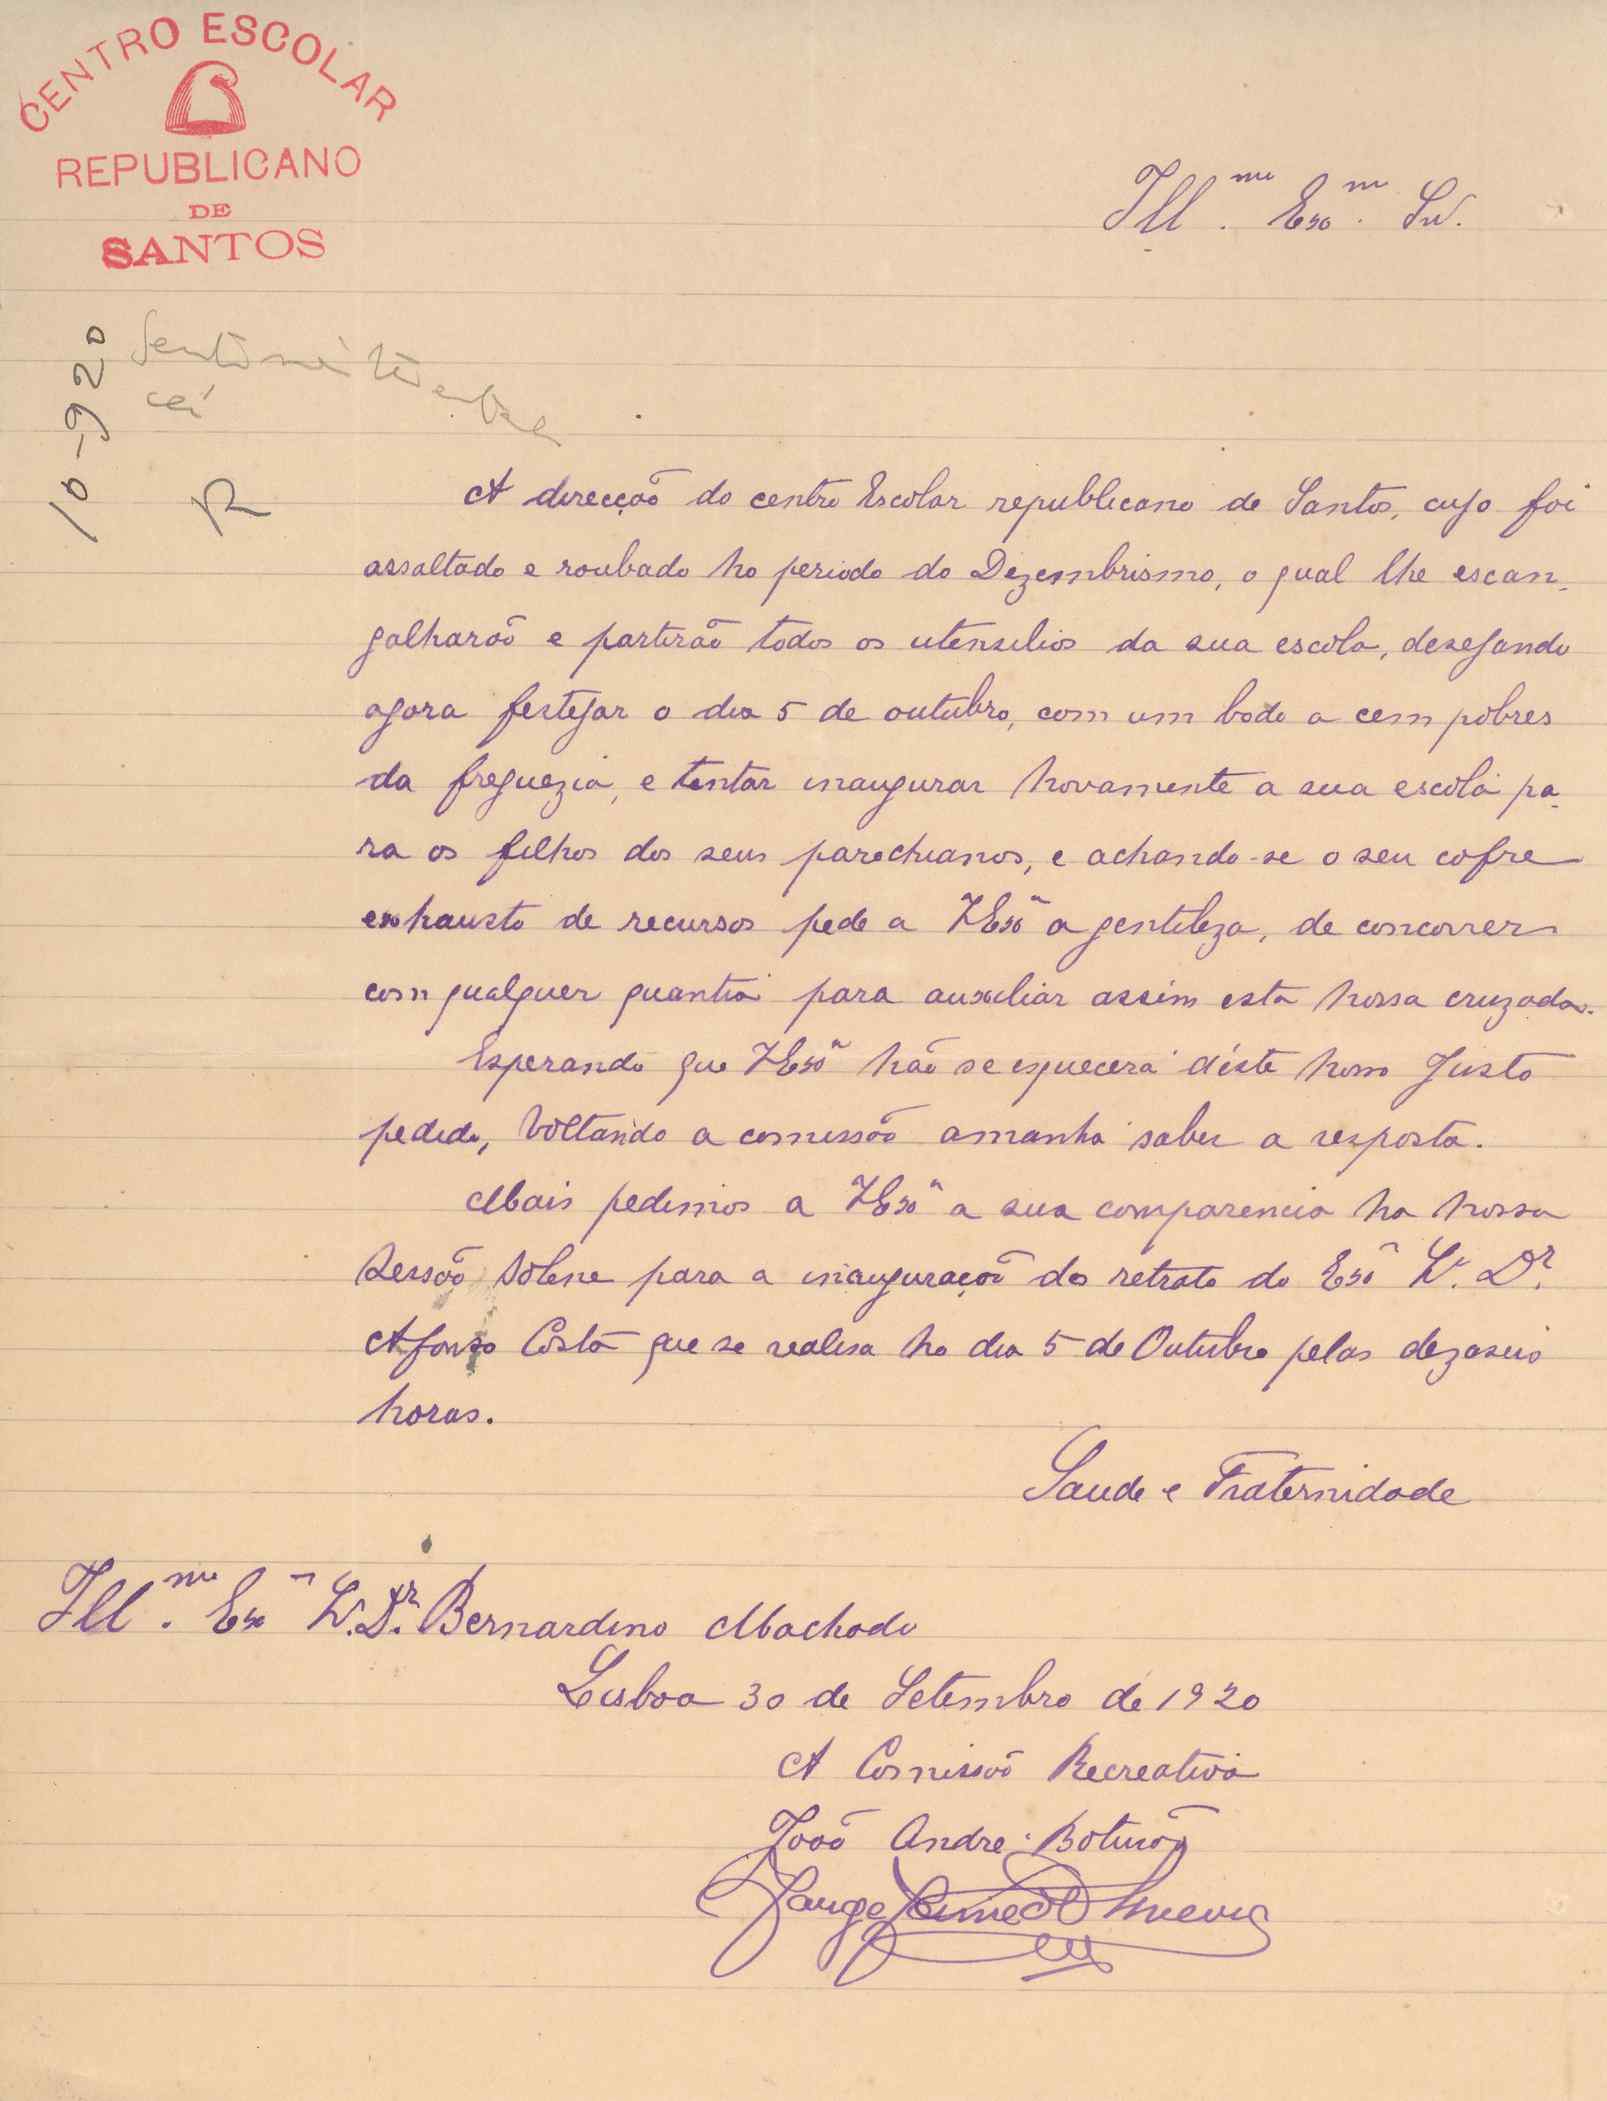 CENTRO ESCOLAR
REPUBLICANO
DE
SANTOS
Ill.mo Exo.m Sr.
10-920
R
A direcção do centro Escolar republicano de Santos, cujo foi
assaltado e roubado no periodo do Dezembrismo, o qual lhe escan-
galharão e partirão todos os utensilios da sua escola, desejando
agora festejar o dia 5 de outubro, com um bodo a cem pobres
da freguezia, e tentar inaugurar novamente a sua escola pa-
ra os filhos dos seus parochianos, e achando-se o seu cofre
exhausto de recursos pede a VExª a gentileza, de concorrer
com qualquer quantia para auxiliar assim esta nossa cruzada.
Esperando que VExª não se esquecerá déste nosso justo
pedido, voltando a comissão amanhã saber a resposta.
Mais pedimos a VExª a sua comparencia na nossa
Sessão Solene para a inauguração do retrato do Exº Sr. Dr.
Afonso Costa que se realisa no dia 5 de Outubro pelas dezaseis
horas.
Saude e Fraternidade
Ill.mo Exº Sr. Dr. Bernardino Machado
Lisboa 30 de Setembro de 1920
A Comissão Recreativa
João Andre Botirão
Jorge